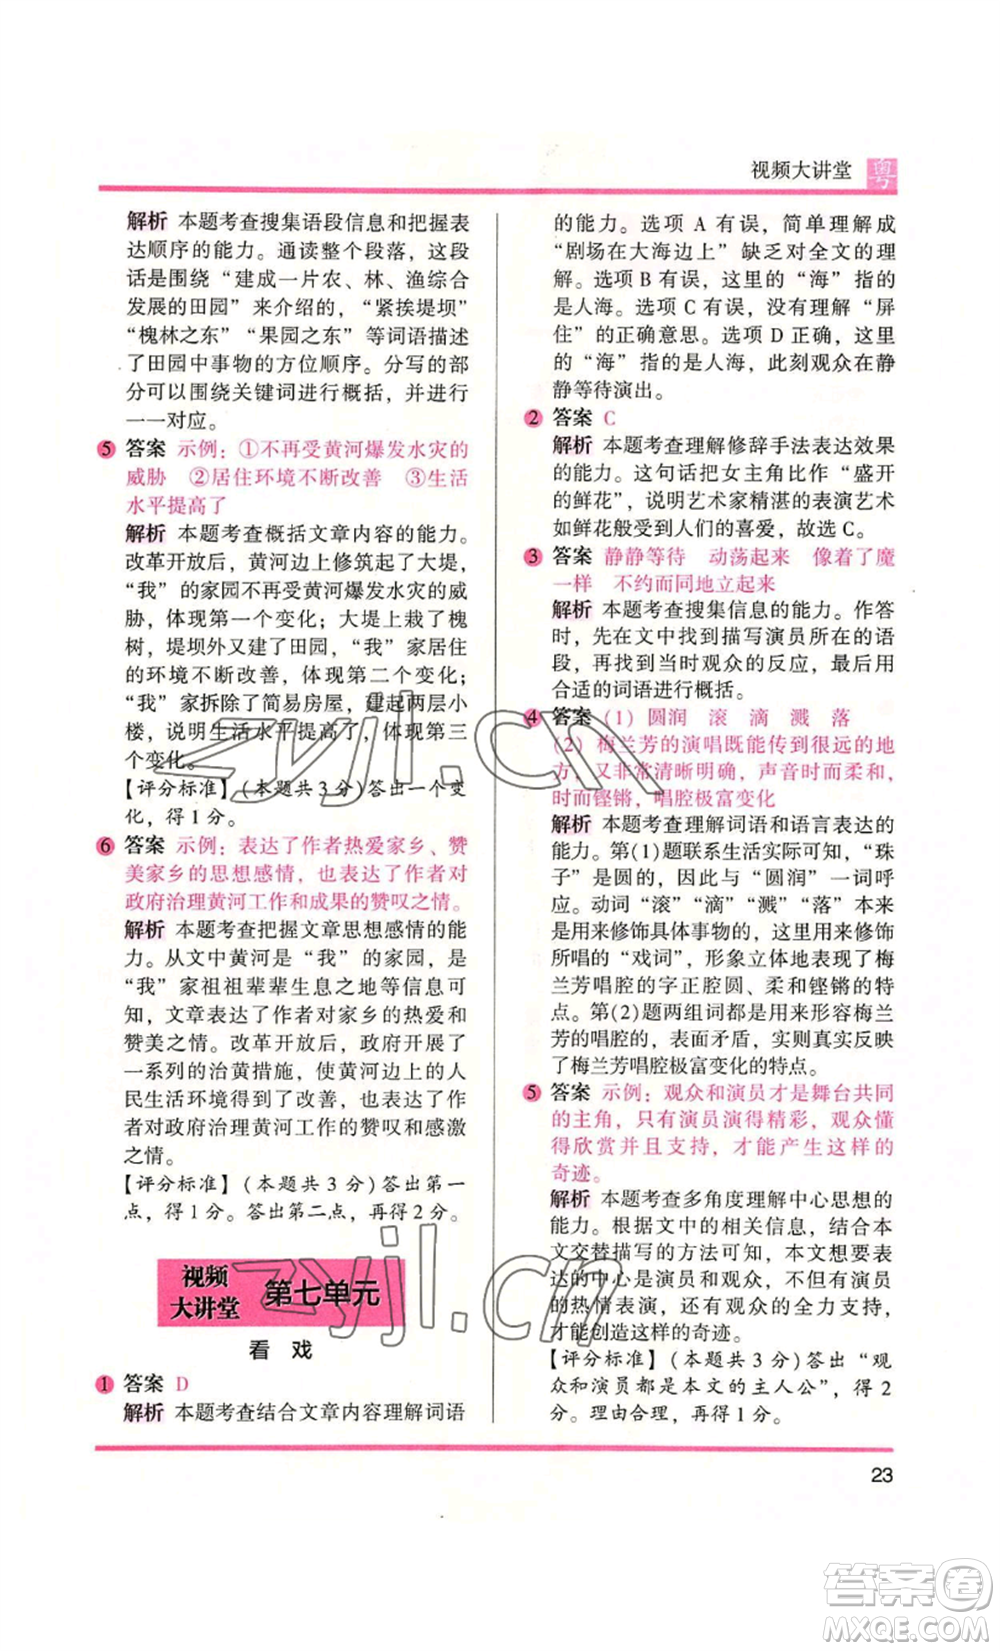 视频大讲堂 粤
解析 本题考查搜集语段信息和把握表
达顺序的能力。通读整个段落，这段
话是围绕“建成一片农、林、渔综合
发展的田园”来介绍的，“紧挨堤坝”
“槐林之东”“果园之东”等词语描述
了田园中事物的方位顺序。分写的部
分可以围绕关键词进行概括，进行
一一对应。
5 答案 示例：①不再受黄河爆发水灾的
威胁 ②居住环境不断改善 ③生活
水平提高了
解析 本题考查概括文章内容的能力。
改革开放后，黄河边上修筑起了大堤，
“我”的家园不再受黄河爆发水灾的威
胁，体现第一个变化；大堤上栽了槐
树，堤坝外又建了田园，“我”家居住
的环境不断改善，体现第二个变化；
“我”家拆除了简易房屋，建起两层小
楼，说明生活水平提高了，体现第三
个变化。
【评分标准】（本题共3分）答出一个变
化，得1分。
6 答案 示例：表达了作者热爱家乡、赞
美家乡的思想感情，也表达了作者对
政府治理黄河工作和成果的赞叹之情。
解析 本题考查把握文章思想感情的能
力。从文中黄河是“我”的家园，是
“我”家祖祖辈辈生息之地等信息可
知，文章表达了作者对家乡的热爱和
赞美之情。改革开放后，政府开展了
一系列的治黄措施，使黄河边上的人
民生活环境得到了改善，体现了作者
对政府治理黄河工作的赞叹和感激
之情。
【评分标准】（本题共3分）答出第一
点，得1分。答出第二点，再得2分。
视频大讲堂 第七单元
看 戏
1 答案 D
解析 本题考查结合文章内容理解词语
的能力。选项A有误，简单理解成
“剧场在大海边上”缺乏对全文的理
解。选项B有误，这里的“海”指的
是人海。选项C有误，没有理解“屏
住”的正确意思。选项D正确，这里
的“海”指的是人海，此刻观众在静
静等待演出。
2 答案 C
解析 本题考查理解修辞手法表达效果
的能力。这句话把女主角比作“盛开
的鲜花”，说明艺术家精湛的表演艺术
如鲜花般受到人们的喜爱，故选C。
3 答案 静静等待 动荡起来 像着了魔
一样 不约而同地立起来
解析 本题考查搜集信息的能力。作答
时，先在文中找到描写演员所在的语
段，再找到当时观众的反应，最后用
合适的词语进行概括。
4 答案 （1）圆润 滚 滴 溅 落
（2）梅兰芳的演唱既能传到很远的地
方，又非常清晰明确，声音时而柔和，
时而铿锵，唱腔极富变化
解析 本题考查理解词语和语言表达的
能力。第（1）题联系生活实际可知，“珠
子”是圆的，与“圆润”一词呼
应。动词“滚”“滴”“溅”“落”本来
是用来修饰具体事物的，这里用来修饰
所唱的“戏词”，形象立体地表现了梅
兰芳唱腔的字正腔圆、柔和铿锵的特
点。第（2）题两组词都是用来形容梅兰
芳的唱腔的，表面矛盾，实则真实反映
了梅兰芳唱腔极富变化的特点。
5 答案 示例：观众和演员才是舞台共同
的主角，只有演员演得精彩，观众懂
得欣赏并且支持，才能产生这样的
奇迹。
解析 本题考查多角度理解中心思想的
能力。根据文中的相关信息，结合本
文交替描写的方法可知，本文想要表
达的中心是演员和观众，既有演员
的热情表演，又有观众的全力支持，
才能创造这样的奇迹。
【评分标准】（本题共3分）答出“观
众和演员都是本文的主人公”，得2
分。理由合理，再得1分。
23
zyjl.cn
zyjl.cn
答案圈
MXQE.COM